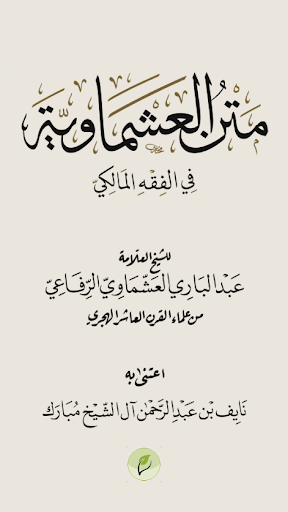 مَتْنُ العَشْمَاوِيَّة
فِي الفِقْهِ المَالِكِيّ
للشيخ العلّامة
عَبْدِ البَارِي العَشْمَاوِيِّ الرِّفَاعِيّ
من علماء القرن العاشر الهجري
اعتنى به
نَايِف بْن عَبْدِ الرَّحْمٰن آل الشَّيْخ مُبَارَك